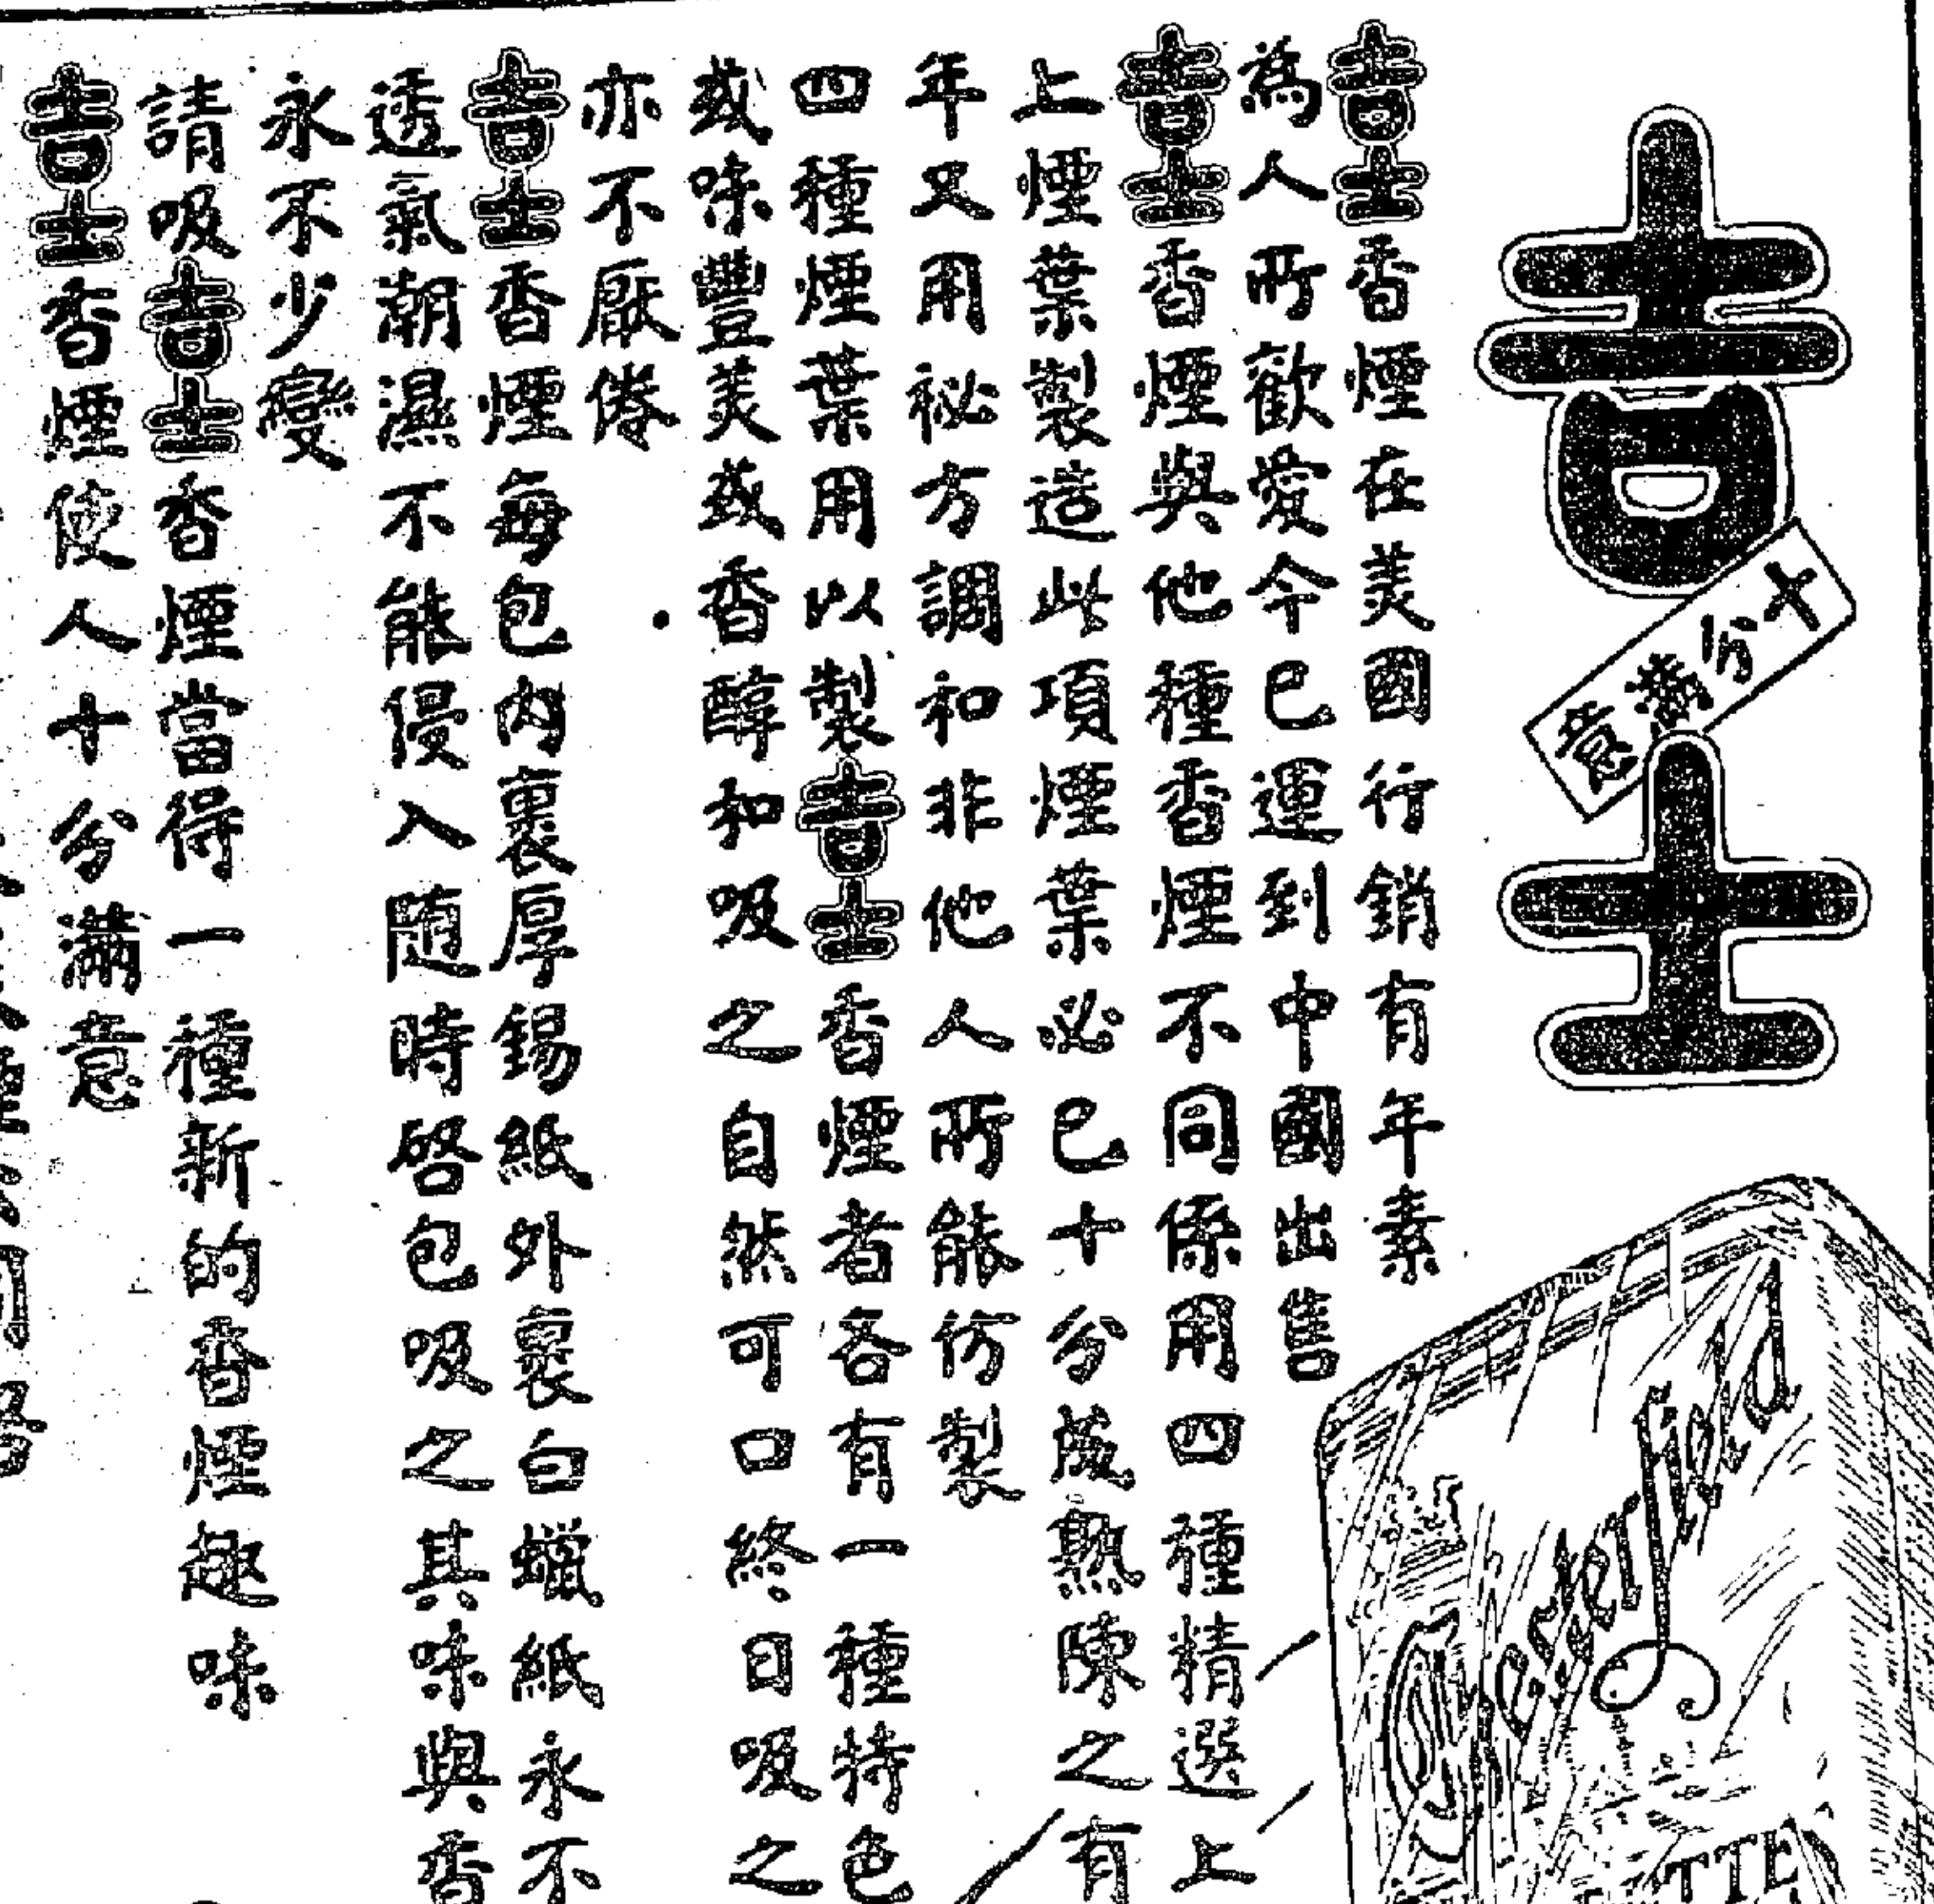 吉士
十分滿意
吉士香煙在美國行銷有年素
為人所歡愛今已運到中國出售
吉士香煙與他種香煙不同係用四種精選上
上煙葉製造此項煙葉必已十分成熟陳之有
年又用秘方調和非他人所能仿製
四種煙葉用以製吉士香煙者各有一種特色
或味豐美或香醇和吸之自然可口終日吸之
亦不厭倦
吉士香煙每包內裏厚錫紙外裹白蠟紙永不
透氣潮濕不能侵入隨時啓包吸之其味與香
永不少變
請吸吉士香煙當得一種新的香煙趣味
吉士香煙使人十分滿意
Chesterfield